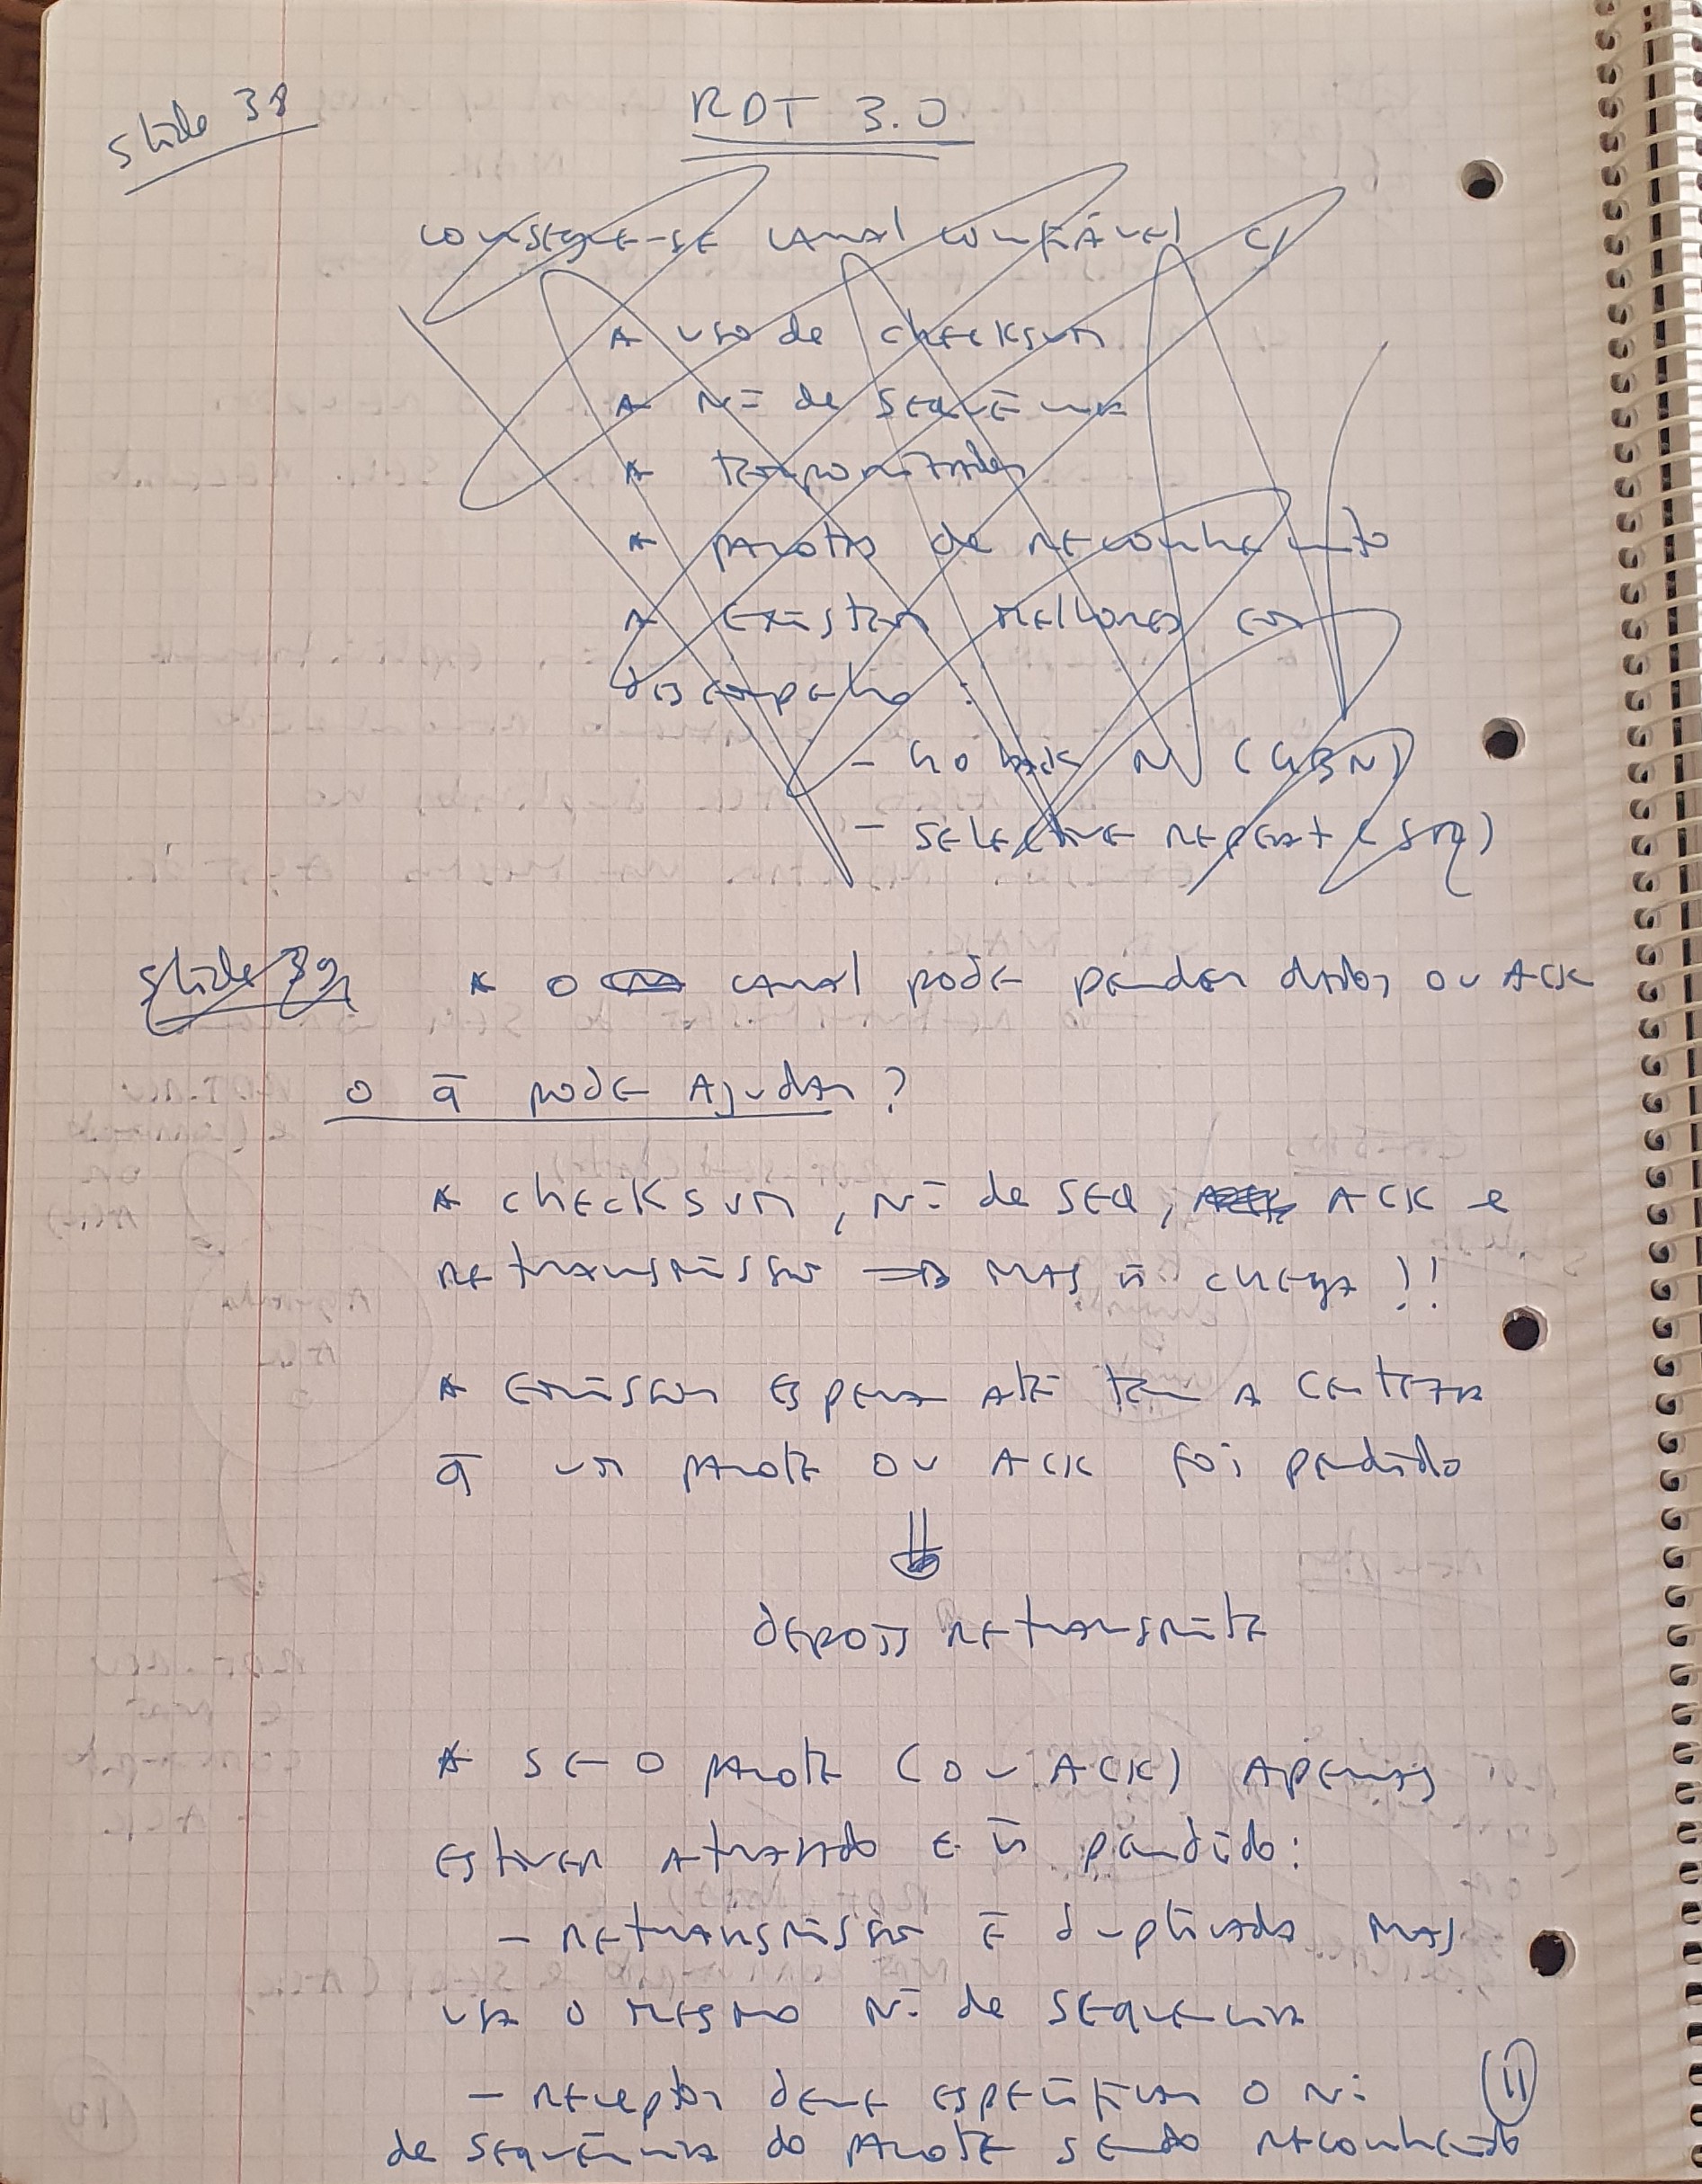 slide 38
RDT 3.0
consegue-se canal confiável c/
* uso de checksum
* Nº de sequência
* temporizador
* pacotes de reconhecimento
* existem melhores em
desempenho :
- Go back N (GBN)
- selective repeat (SR)
slide 39
* o canal pode perder dados ou ACK
o q̄ pode Ajudar ?
* checksum, Nº de seq, ACK e
retransmissão => mas ñ chega !!
* emissor espera até ter a certeza
q̄ um pacote ou ACK foi perdido
⇓
depois retransmite
* se o pacote (ou ACK) apenas
estiver atrasado e ñ perdido:
- retransmissão é duplicada mas
usa o mesmo Nº de sequencia
- receptor deve especificar o Nº
de sequência do pacote sendo reconhecido
11